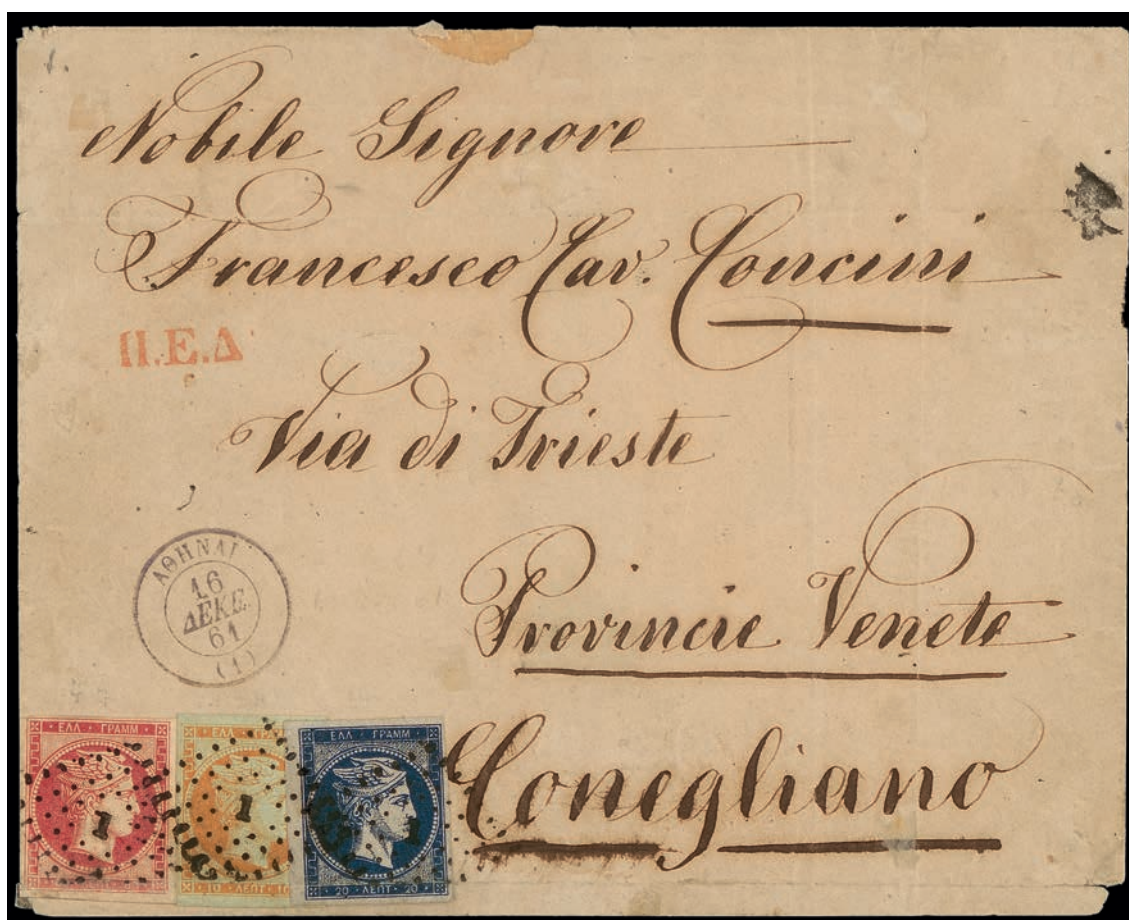 Nobile Signore
Francesco Cav. Concini
Π.Ε.Δ
Via di Trieste
ΑΘΗΝΑΙ
16
ΔΕΚΕ.
61
(1)
Provincie Venete
Conegliano
ΕΛΛ · ΓΡΑΜΜ
1
ΕΛΛ · ΓΡΑΜΜ
1
10 · ΛΕΠΤ · 10
ΕΛΛ · ΓΡΑΜΜ
20 · ΛΕΠΤ · 20